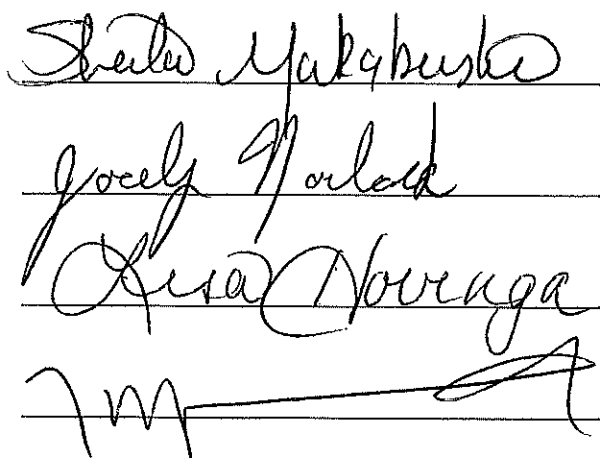 Sheila Makabuske
Jocely Norlock
Lisa Hovenga